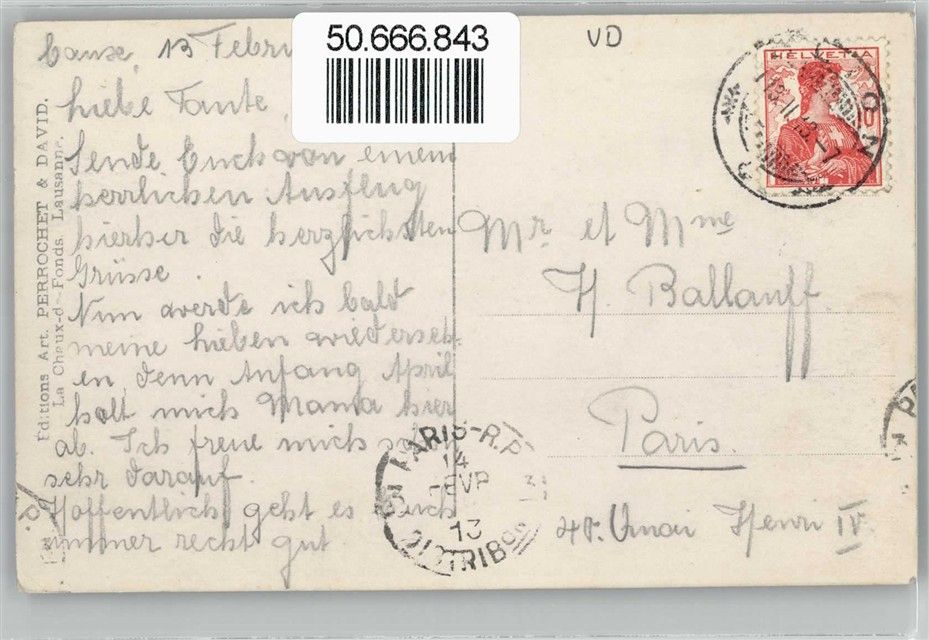 50.666.843
VD
13 Febru
Liebe Tante,
Sende Euch von einem
herrlichen Ausflug
hierher die herzlichsten
Grüsse.
Nun werde ich bald
meine Lieben wiederseh-
en, denn Anfang April
holt mich Mama hier
ab. Ich freue mich schon
sehr darauf.
Hoffentlich geht es Euch
immer recht gut
Editions Art. PERROCHET & DAVID.
La Chaux-de-Fonds, Lausanne.
HELVETIA
10
Mr et Mme
H. Ballauff
Paris.
40. Henri IV
PARIS-R.P
14
FEVR
13
DISTRIBON